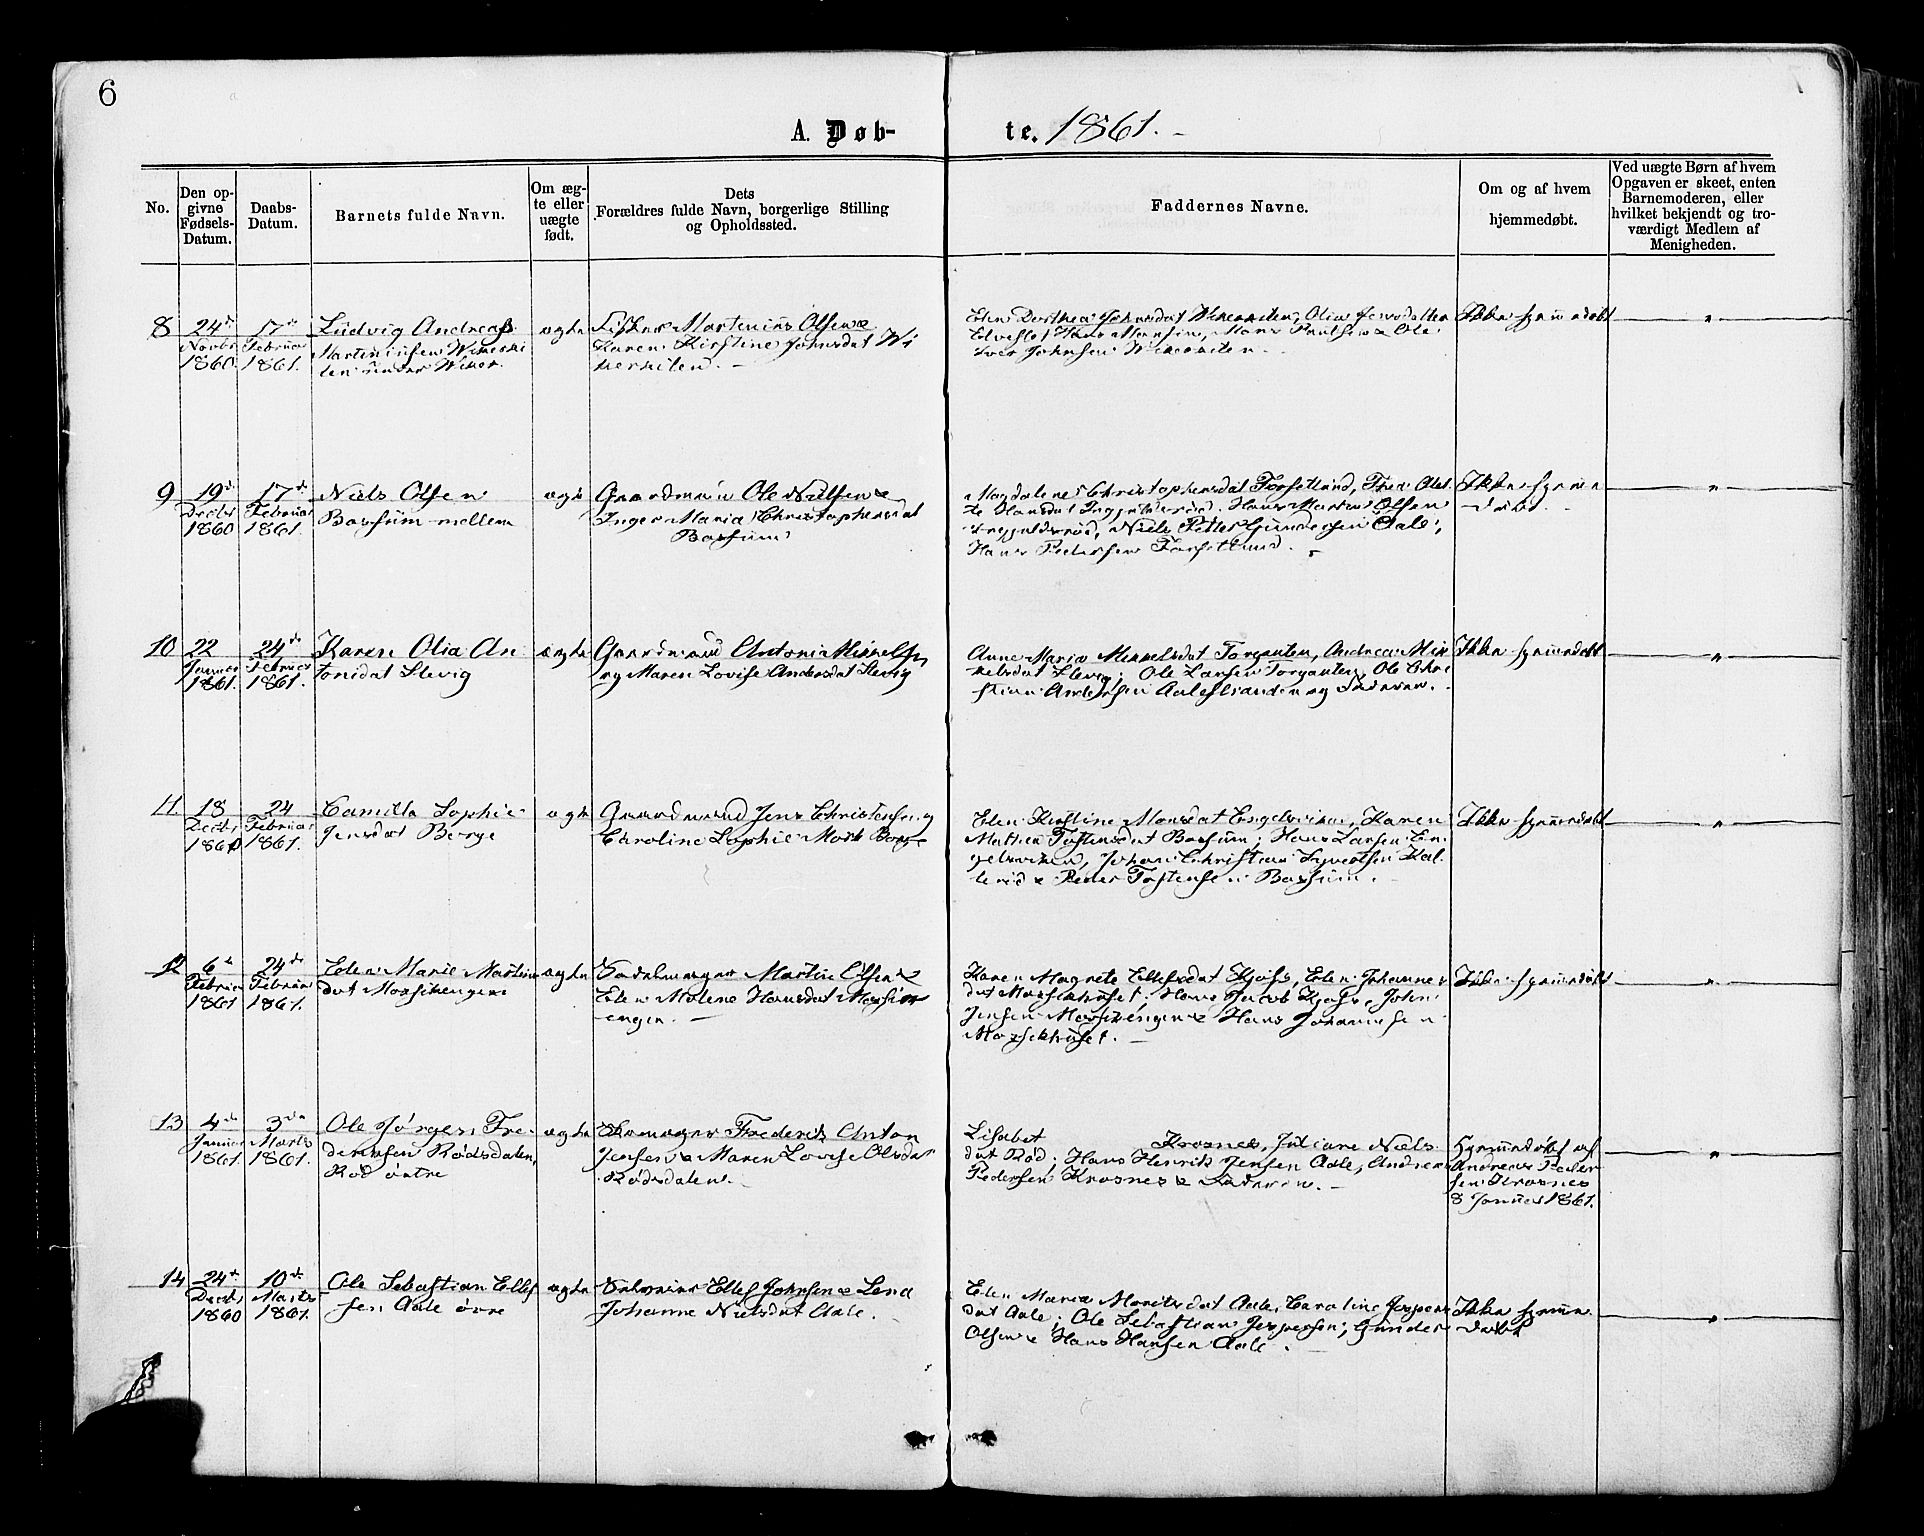 6
A. Døb-
te. 1861. -
No.
Den op-
givne
Fødsels-
Datum.
Daabs-
Datum.
Barnets fulde Navn.
Om æg-
te eller
uægte
født.
Dets
Forældres fulde Navn, borgerlige Stilling
og Opholdssted.
Faddernes Navne.
Om og af hvem
hjemmedøbt.
Ved uægte Børn af hvem
Opgaven er skeet, enten
Barnemoderen, eller
hvilket bekjendt og tro-
værdigt Medlem af
Menigheden.
8
24de
Novbr
1860
17de
Februar
1861.
Ludvig Andreas
Martiniusen
Wiker.
ægte
Fisker Martinius Olsen &
Karen Kirstine Johnsdat Wi
kerkilen. -
Elen Dorthea Johnsdat
Hans Mansin, Hans Paulsen & Ole
Iver Johnsen
Ikke hjemmedøbt
"
9
19de
Decbr
1860
17de
Februar
1861.
Niels Olsen
Bossum mellem
ægte
Gaardmand Ole Nielsen &
Inger Maria Christophersdat
Bossum
Magdalene Christophersdat Torsetlund, Thea Olet
te Hansdat Hans Martin Olsen
Niels Petter Gundersen Aale,
Hans Pedersen Torsetlund. -
Ikke hjemme
døbt.
"
10
22
Januar
1861.
24de
Februar
1861.
Karen Olia An
tonidat Slevig
ægte
Gaardmand Antoni Mikkelsen
og Maren Lovise Andersdat Slevig
Anne Maria Mikkelsdat Torgauten, Andrea Mik
kelsdat Slevig; Ole Larsen Torgauten, Ole Chri
stian Andersen Aalestranden og Faderen.
Ikke hjemmedøbt
"
11.
18
Decbr
1860
24
Februar
1861.
Camilla Sophie
Jensdat Berge
ægte
Gaardmand Jens Christensen og
Caroline Sophie Mork Berge
Elen Kirstine Monsdat Engelsviken, Karen
Mathea Tostensdat Bossum; Hans Larsen En
gelsviken, Johan Christian Syvertsen Kal
lerød & Peder Tostensen Bossum. -
Ikke hjemmedøbt
"
12
6te
Februar
1861
24de
Februar
1861.
Elen Marie Martins
dat Mossikengen
ægte
Sadelmager Martin Olsen &
Elen Malene Hansdat Mossik
engen. -
Karen Magrete Ellefsdat Kjøs, Elen Johannes
dat; Hans Jacob Kjøs, John
Jensen Mossikengen & Hans Johannesen
Ikke hjemmedøbt
"
13
4de
Januar
1861.
3die
Marts
1861.
Ole Jørgen Fre
deriksen Rødsdalen,
Rød østre
ægte
Skomager Frederik Anton
Jensen & Maren Lovise Olsdat
Rødsdalen. -
Lisabet Krosnes, Juliane Niels
dat Rød; Hans Henrik Jensen Aale, Andreas
Pedersen Krosnes & Faderen. -
Hjemmedøbt af
Andreas Peder
sen Krosnes
8 Januar 1861.
"
14
24de
Decbr
1860
10de
Marts
1861.
Ole Sebastian Ellef
sen Aale øvre
ægte
Ellef Johnsen & Lena
Johanne Nielsdat Aale.
Elen Maria Moritsdat Aale, Caroline Jespers
dat Aale; Ole Sebastian Jespersen, Gunder
Olsen & Hans Hansen Aale.
Ikke hjemme
døbt
"